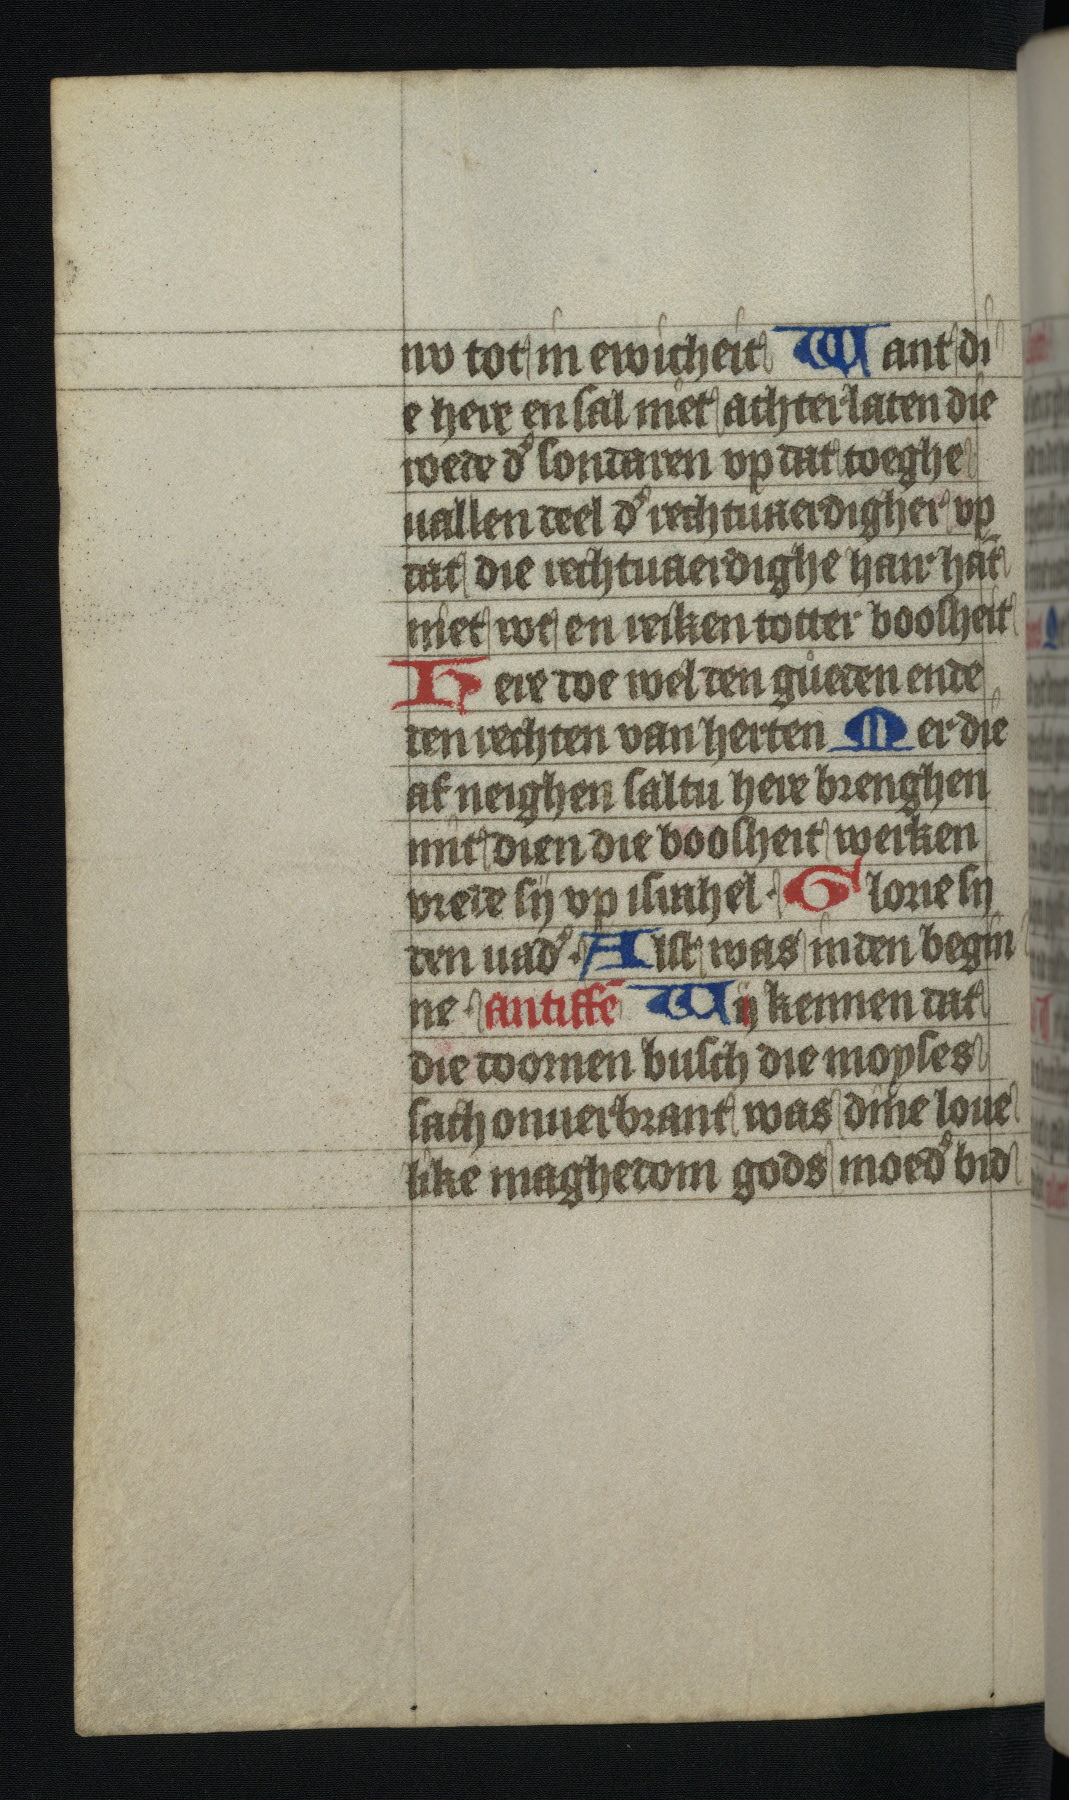 nv tot in ewicheit Want di
e here en sal niet achterlaten die
roede d' sondaren vp dat toeghe
uallen deel d' rechtuaerdigher vp
dat die rechtuaerdighe hair hāt
niet wt en reiken totter boosheit
Here doe wel den gueden ende
den rechten van herten Mer die
af neighen saltu here brenghen
mit dien die boosheit werken
vrede sij vp israhel · Glorie sij
den uad' · Alst was inden begin
ne · antiffē Wij kennen dat
die doornen busch die moyses
sach onuerbrant was dine loue
like maghedom gods moed' bid